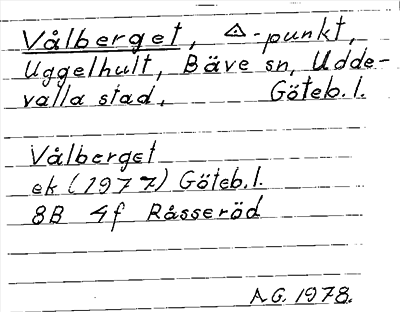 Vålberget, △-punkt,
Uggelhult, Bäve sn, Udde-
valla stad, Göteb. l.
Vålberget
ek (1977) Göteb. l.
8B 4f Råsseröd
A.G. 1978.